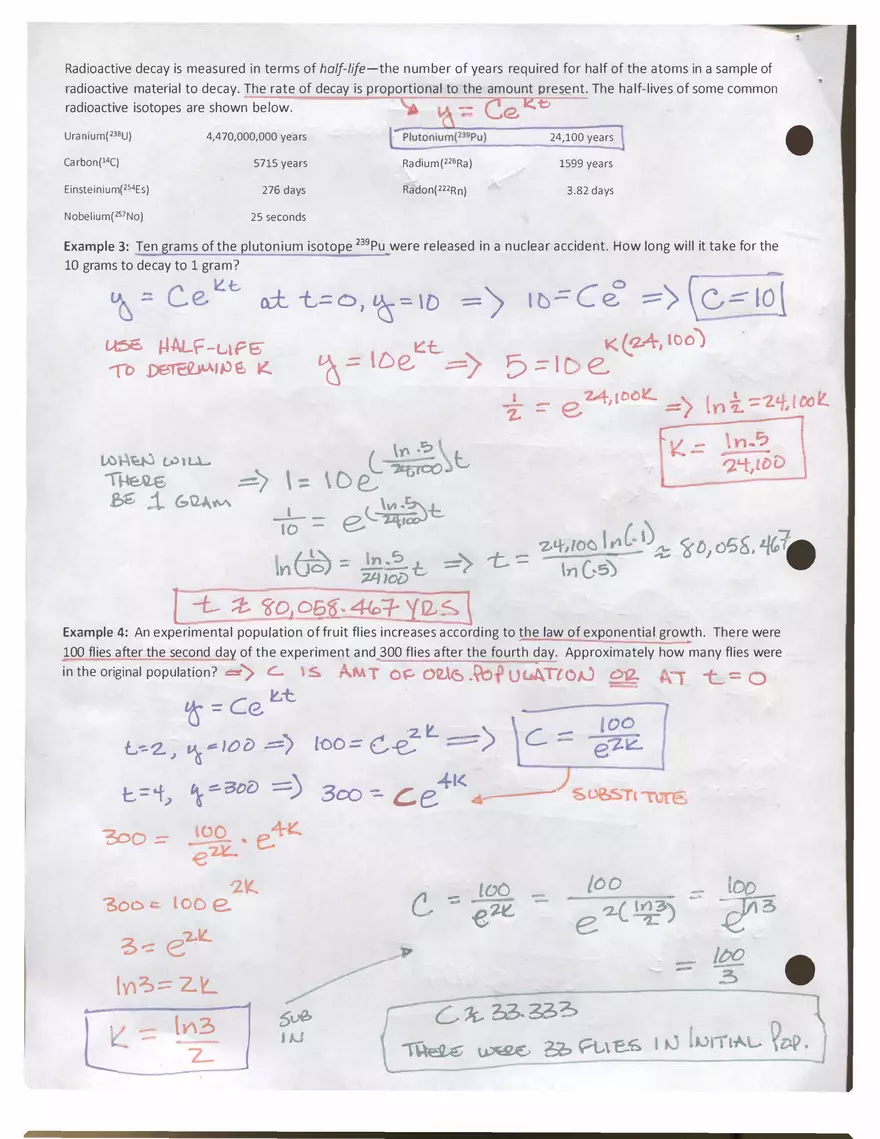 Radioactive decay is measured in terms of half-life—the number of years required for half of the atoms in a sample of
radioactive material to decay. The rate of decay is proportional to the amount present. The half-lives of some common
radioactive isotopes are shown below.
y = Ce^kt
Uranium(²³⁸U) 4,470,000,000 years Plutonium(²³⁹Pu) 24,100 years
Carbon(¹⁴C) 5715 years Radium(²²⁶Ra) 1599 years
Einsteinium(²⁵⁴Es) 276 days Radon(²²²Rn) 3.82 days
Nobelium(²⁵⁷No) 25 seconds
Example 3: Ten grams of the plutonium isotope ²³⁹Pu were released in a nuclear accident. How long will it take for the
10 grams to decay to 1 gram?
y = Ce^kt at t=0, y=10 => 10=Ce^0 => C=10
USE HALF-LIFE
TO DETERMINE K
y = 10e^kt => 5=10e^K(24,100)
1/2 = e^24,100K => ln 1/2 = 24,100K
K = ln.5/24,100
WHEN WILL
THERE
BE 1 GRAM
=> 1 = 10e^(ln .5/24,100)t
1/10 = e^(ln.5/24100)t
ln(1/10) = ln.5/24100 t => t = 24,100 ln(.1)/ln(.5) ≈ 80,058.467
t ≈ 80,058.467 YRS
Example 4: An experimental population of fruit flies increases according to the law of exponential growth. There were
100 flies after the second day of the experiment and 300 flies after the fourth day. Approximately how many flies were
in the original population? => C IS AMT OF ORIG. POPULATION OR AT t=0
y = Ce^kt
t=2, y=100 => 100=Ce^2K => C = 100/e^2K
t=4, y=300 => 300 = Ce^4K
SUBSTITUTE
300 = 100/e^2K · e^4K
300 = 100e^2K
3 = e^2K
ln3 = 2K
K = ln3/2
SUB
IN
C = 100/e^2K = 100/e^2(ln3/2) = 100/e^ln3
= 100/3
C ≈ 33.333
THERE WERE 33 FLIES IN INITIAL POP.